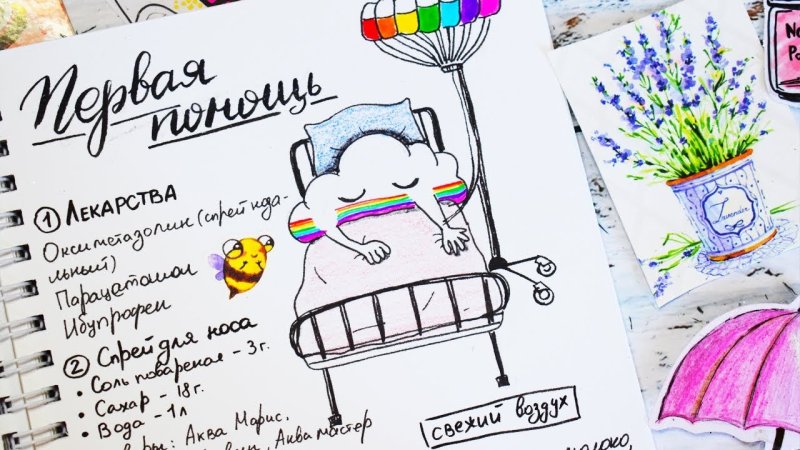 Первая
помощь
1 Лекарства
Оксиметазолин (спрей нда-
льный)
Парацатомол
Ибупрофен
2 Спрей для носа
• Соль поваренная - 3 г.
• Сахар - 18 г.
• Вода - 1 л
Аква Марис.
Аквамастер
свежий воздух
молоко,
Lavender
No